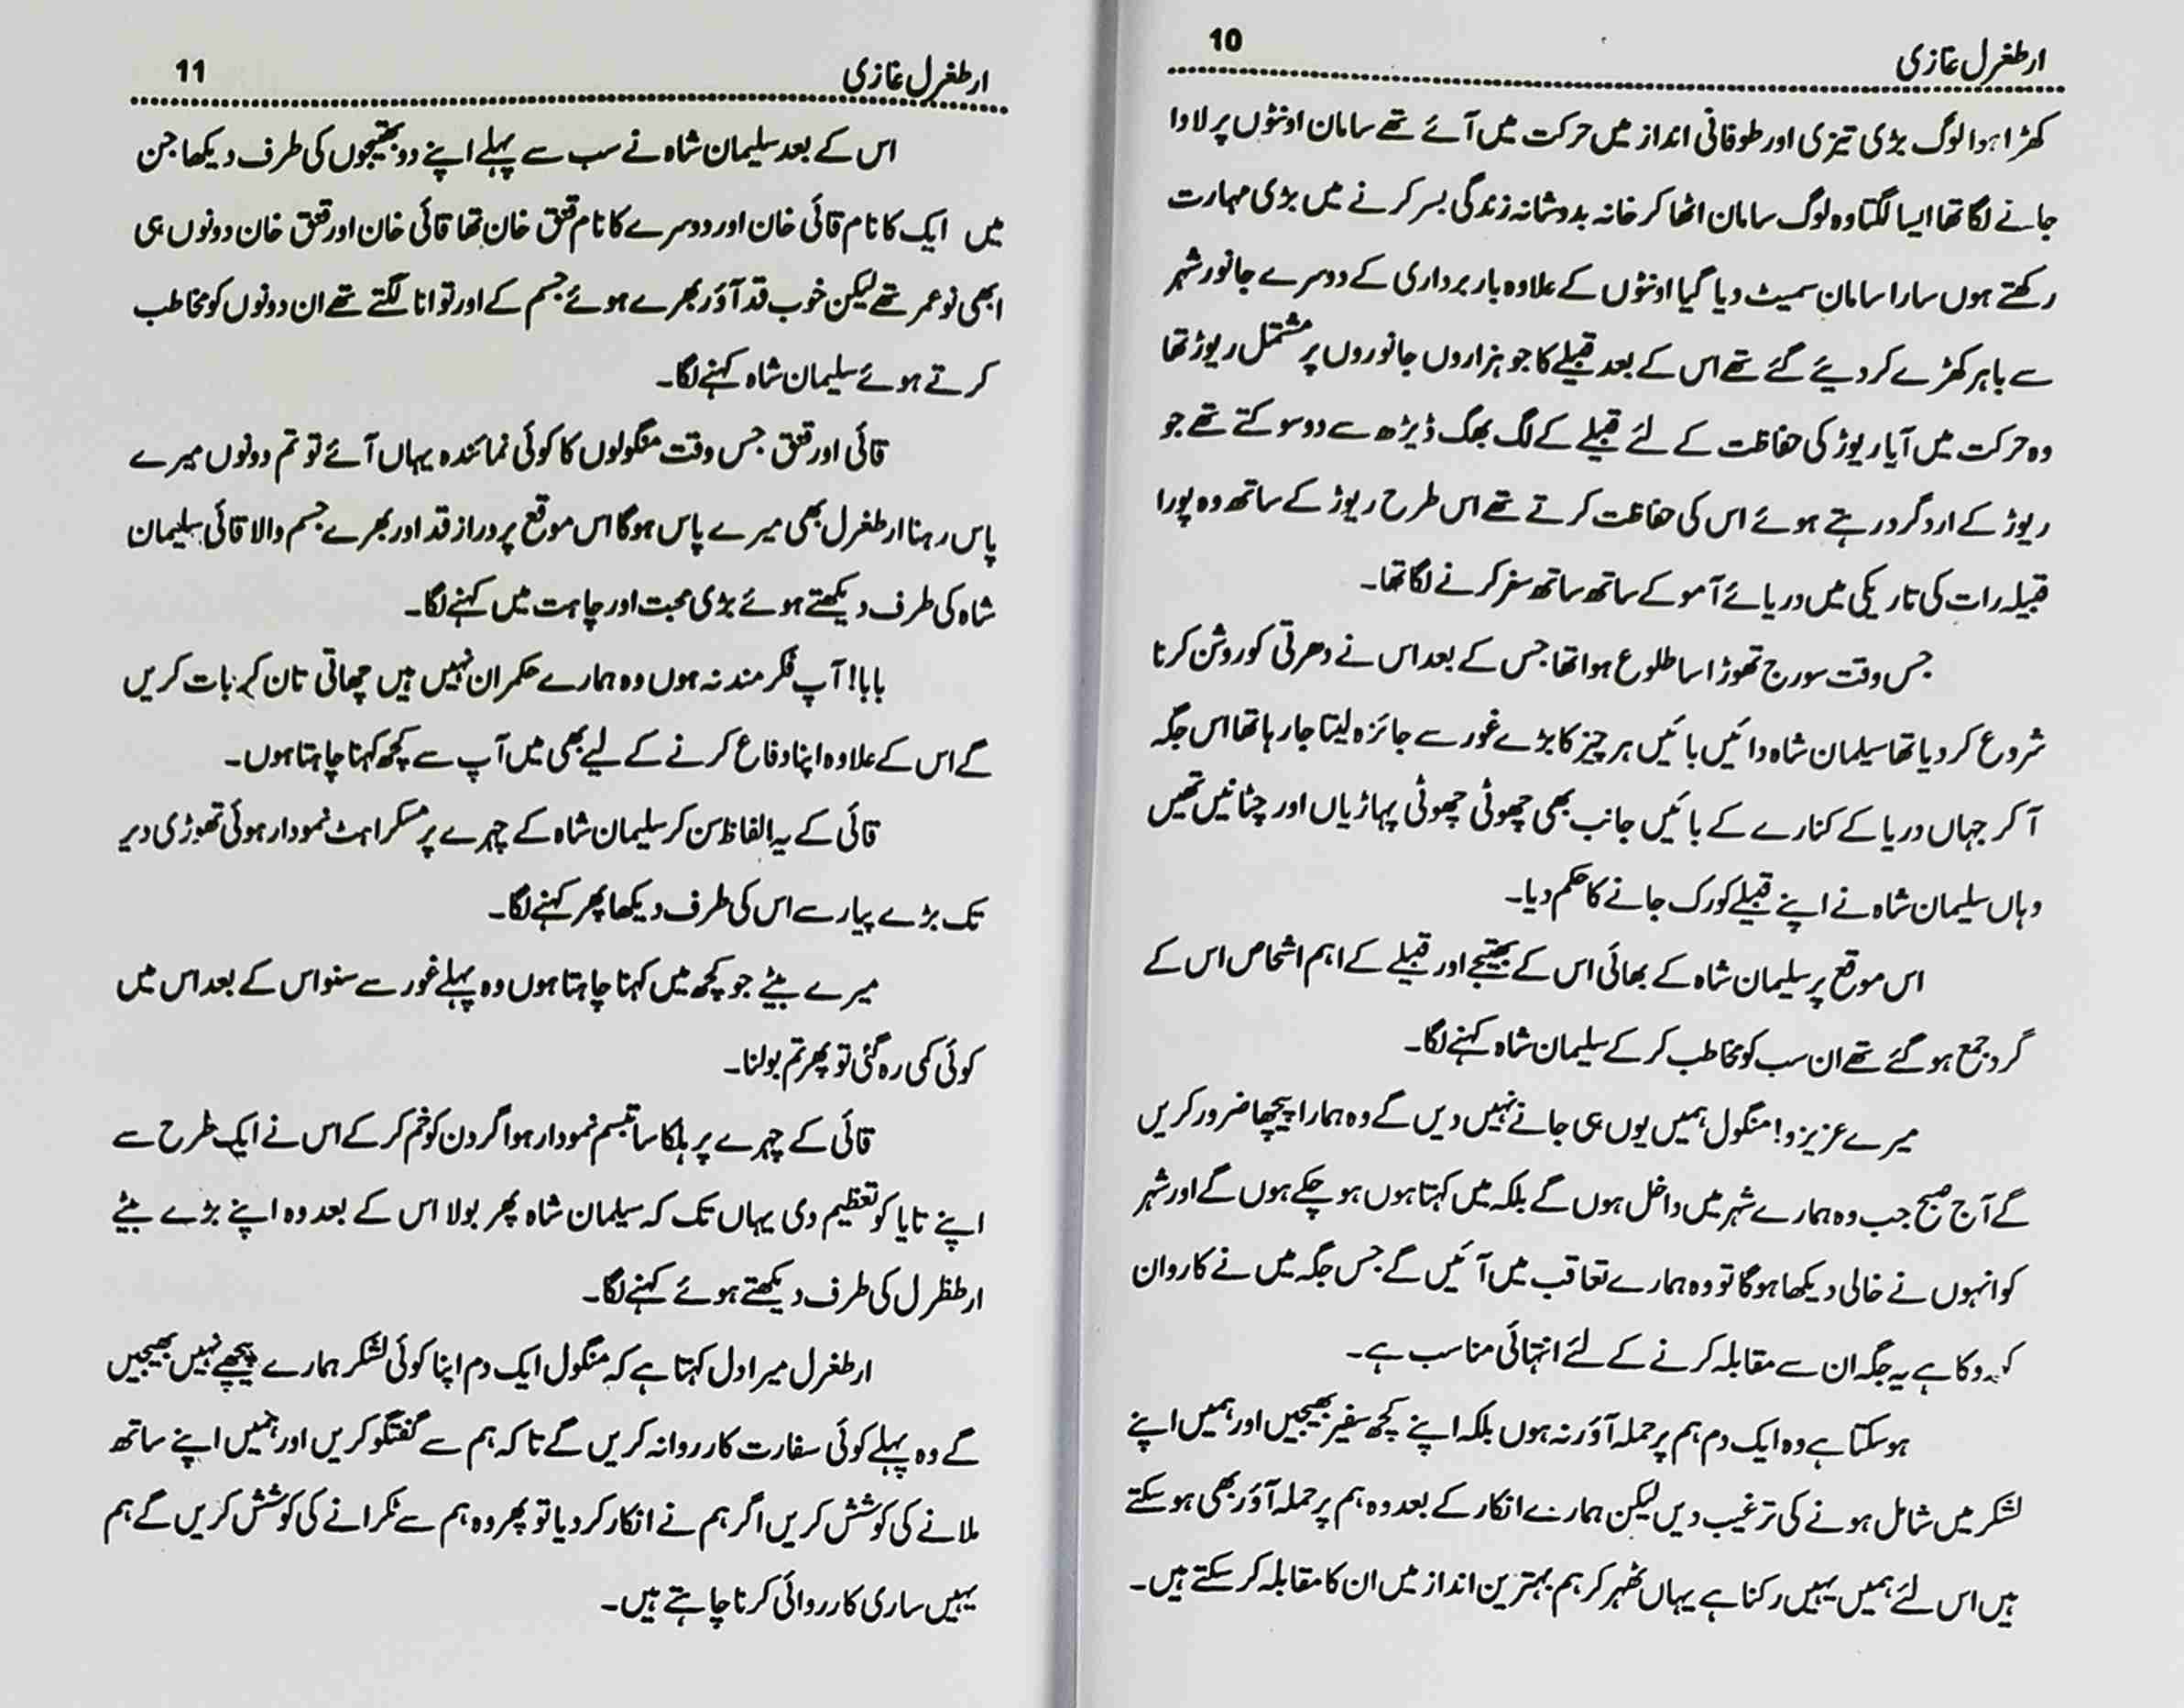 ارطغرل غازی
10
کھڑا ہوا لوگ بڑی تیزی اور طوفانی انداز میں حرکت میں آئے تھے سامان اونٹوں پر لادا
جانے لگا تھا ایسا لگتا وہ لوگ سامان اٹھا کر خانہ بدوشانہ زندگی بسر کرنے میں بڑی مہارت
رکھتے ہوں سارا سامان سمیٹ دیا گیا اونٹوں کے علاوہ بار برداری کے دوسرے جانور شہر
سے باہر کھڑے کر دیئے گئے تھے اس کے بعد قبیلے کا جو ہزاروں جانوروں پر مشتمل ریوڑ تھا
وہ حرکت میں آیا ریوڑ کی حفاظت کے لئے قبیلے کے لگ بھگ ڈیڑھ سے دو سو کتے تھے جو
ریوڑ کے ارد گرد رہتے ہوئے اس کی حفاظت کرتے تھے اس طرح ریوڑ کے ساتھ وہ پورا
قبیلہ رات کی تاریکی میں دریائے آمو کے ساتھ ساتھ سفر کرنے لگا تھا۔
جس وقت سورج تھوڑا سا طلوع ہوا تھا جس کے بعد اس نے دھرتی کو روشن کرنا
شروع کر دیا تھا سیلمان شاہ دائیں بائیں ہر چیز کا بڑے غور سے جائزہ لیتا جا رہا تھا اس جگہ
آ کر جہاں دریا کے کنارے کے بائیں جانب بھی چھوٹی چھوٹی پہاڑیاں اور چٹانیں تھیں
وہاں سلیمان شاہ نے اپنے قبیلے کو رک جانے کا حکم دیا۔
اس موقع پر سلیمان شاہ کے بھائی اس کے بھتیجے اور قبیلے کے اہم اشخاص اس کے
گرد جمع ہو گئے تھے ان سب کو مخاطب کر کے سلیمان شاہ کہنے لگا۔
میرے عزیزو! منگول ہمیں یوں ہی جانے نہیں دیں گے وہ ہمارا پیچھا ضرور کریں
گے آج صبح جب وہ ہمارے شہر میں داخل ہوں گے بلکہ میں کہتا ہوں ہو چکے ہوں گے اور شہر
کو انہوں نے خالی دیکھا ہوگا تو وہ ہمارے تعاقب میں آئیں گے جس جگہ میں نے کاروان
کو روکا ہے یہ جگہ ان سے مقابلہ کرنے کے لئے انتہائی مناسب ہے۔
ہو سکتا ہے وہ ایک دم ہم پر حملہ آؤر نہ ہوں بلکہ اپنے کچھ سفیر بھیجیں اور ہمیں اپنے
لشکر میں شامل ہونے کی ترغیب دیں لیکن ہمارے انکار کے بعد وہ ہم پر حملہ آؤر بھی ہو سکتے
ہیں اس لئے ہمیں یہیں رکنا ہے یہاں ٹھہر کر ہم بہترین انداز میں ان کا مقابلہ کر سکتے ہیں۔
ارطغرل غازی
11
اس کے بعد سلیمان شاہ نے سب سے پہلے اپنے دو بھتیجوں کی طرف دیکھا جن
میں ایک کا نام قائی خان اور دوسرے کا نام قنق خان تھا قائی خان اور قنق خان دونوں ہی
ابھی نو عمر تھے لیکن خوب قد آؤر بھرے ہوئے جسم کے اور توانا لگتے تھے ان دونوں کو مخاطب
کرتے ہوئے سلیمان شاہ کہنے لگا۔
قائی اور قنق جس وقت منگولوں کا کوئی نمائندہ یہاں آئے تو تم دونوں میرے
پاس رہنا ارطغرل بھی میرے پاس ہوگا اس موقع پر دراز قد اور بھرے جسم والا قائی سلیمان
شاہ کی طرف دیکھتے ہوئے بڑی محبت اور چاہت میں کہنے لگا۔
بابا! آپ فکر مند نہ ہوں وہ ہمارے حکمران نہیں ہیں چھاتی تان کر بات کریں
گے اس کے علاوہ اپنا دفاع کرنے کے لیے بھی میں آپ سے کچھ کہنا چاہتا ہوں۔
قائی کے یہ الفاظ سن کر سلیمان شاہ کے چہرے پر مسکراہٹ نمودار ہوئی تھوڑی دیر
تک بڑے پیار سے اس کی طرف دیکھا پھر کہنے لگا۔
میرے بیٹے جو کچھ میں کہنا چاہتا ہوں وہ پہلے غور سے سنو اس کے بعد اس میں
کوئی کمی رہ گئی تو پھر تم بولنا۔
قائی کے چہرے پر ہلکا سا تبسم نمودار ہوا گردن کو خم کر کے اس نے ایک طرح سے
اپنے تایا کو تعظیم دی یہاں تک کہ سیلمان شاہ پھر بولا اس کے بعد وہ اپنے بڑے بیٹے
ارطظرل کی طرف دیکھتے ہوئے کہنے لگا۔
ارطغرل میرا دل کہتا ہے کہ منگول ایک دم اپنا کوئی لشکر ہمارے پیچھے نہیں بھیجیں
گے وہ پہلے کوئی سفارت کار روانہ کریں گے تا کہ ہم سے گفتگو کریں اور ہمیں اپنے ساتھ
ملانے کی کوشش کریں اگر ہم نے انکار کر دیا تو پھر وہ ہم سے ٹکرانے کی کوشش کریں گے ہم
یہیں ساری کارروائی کرنا چاہتے ہیں۔